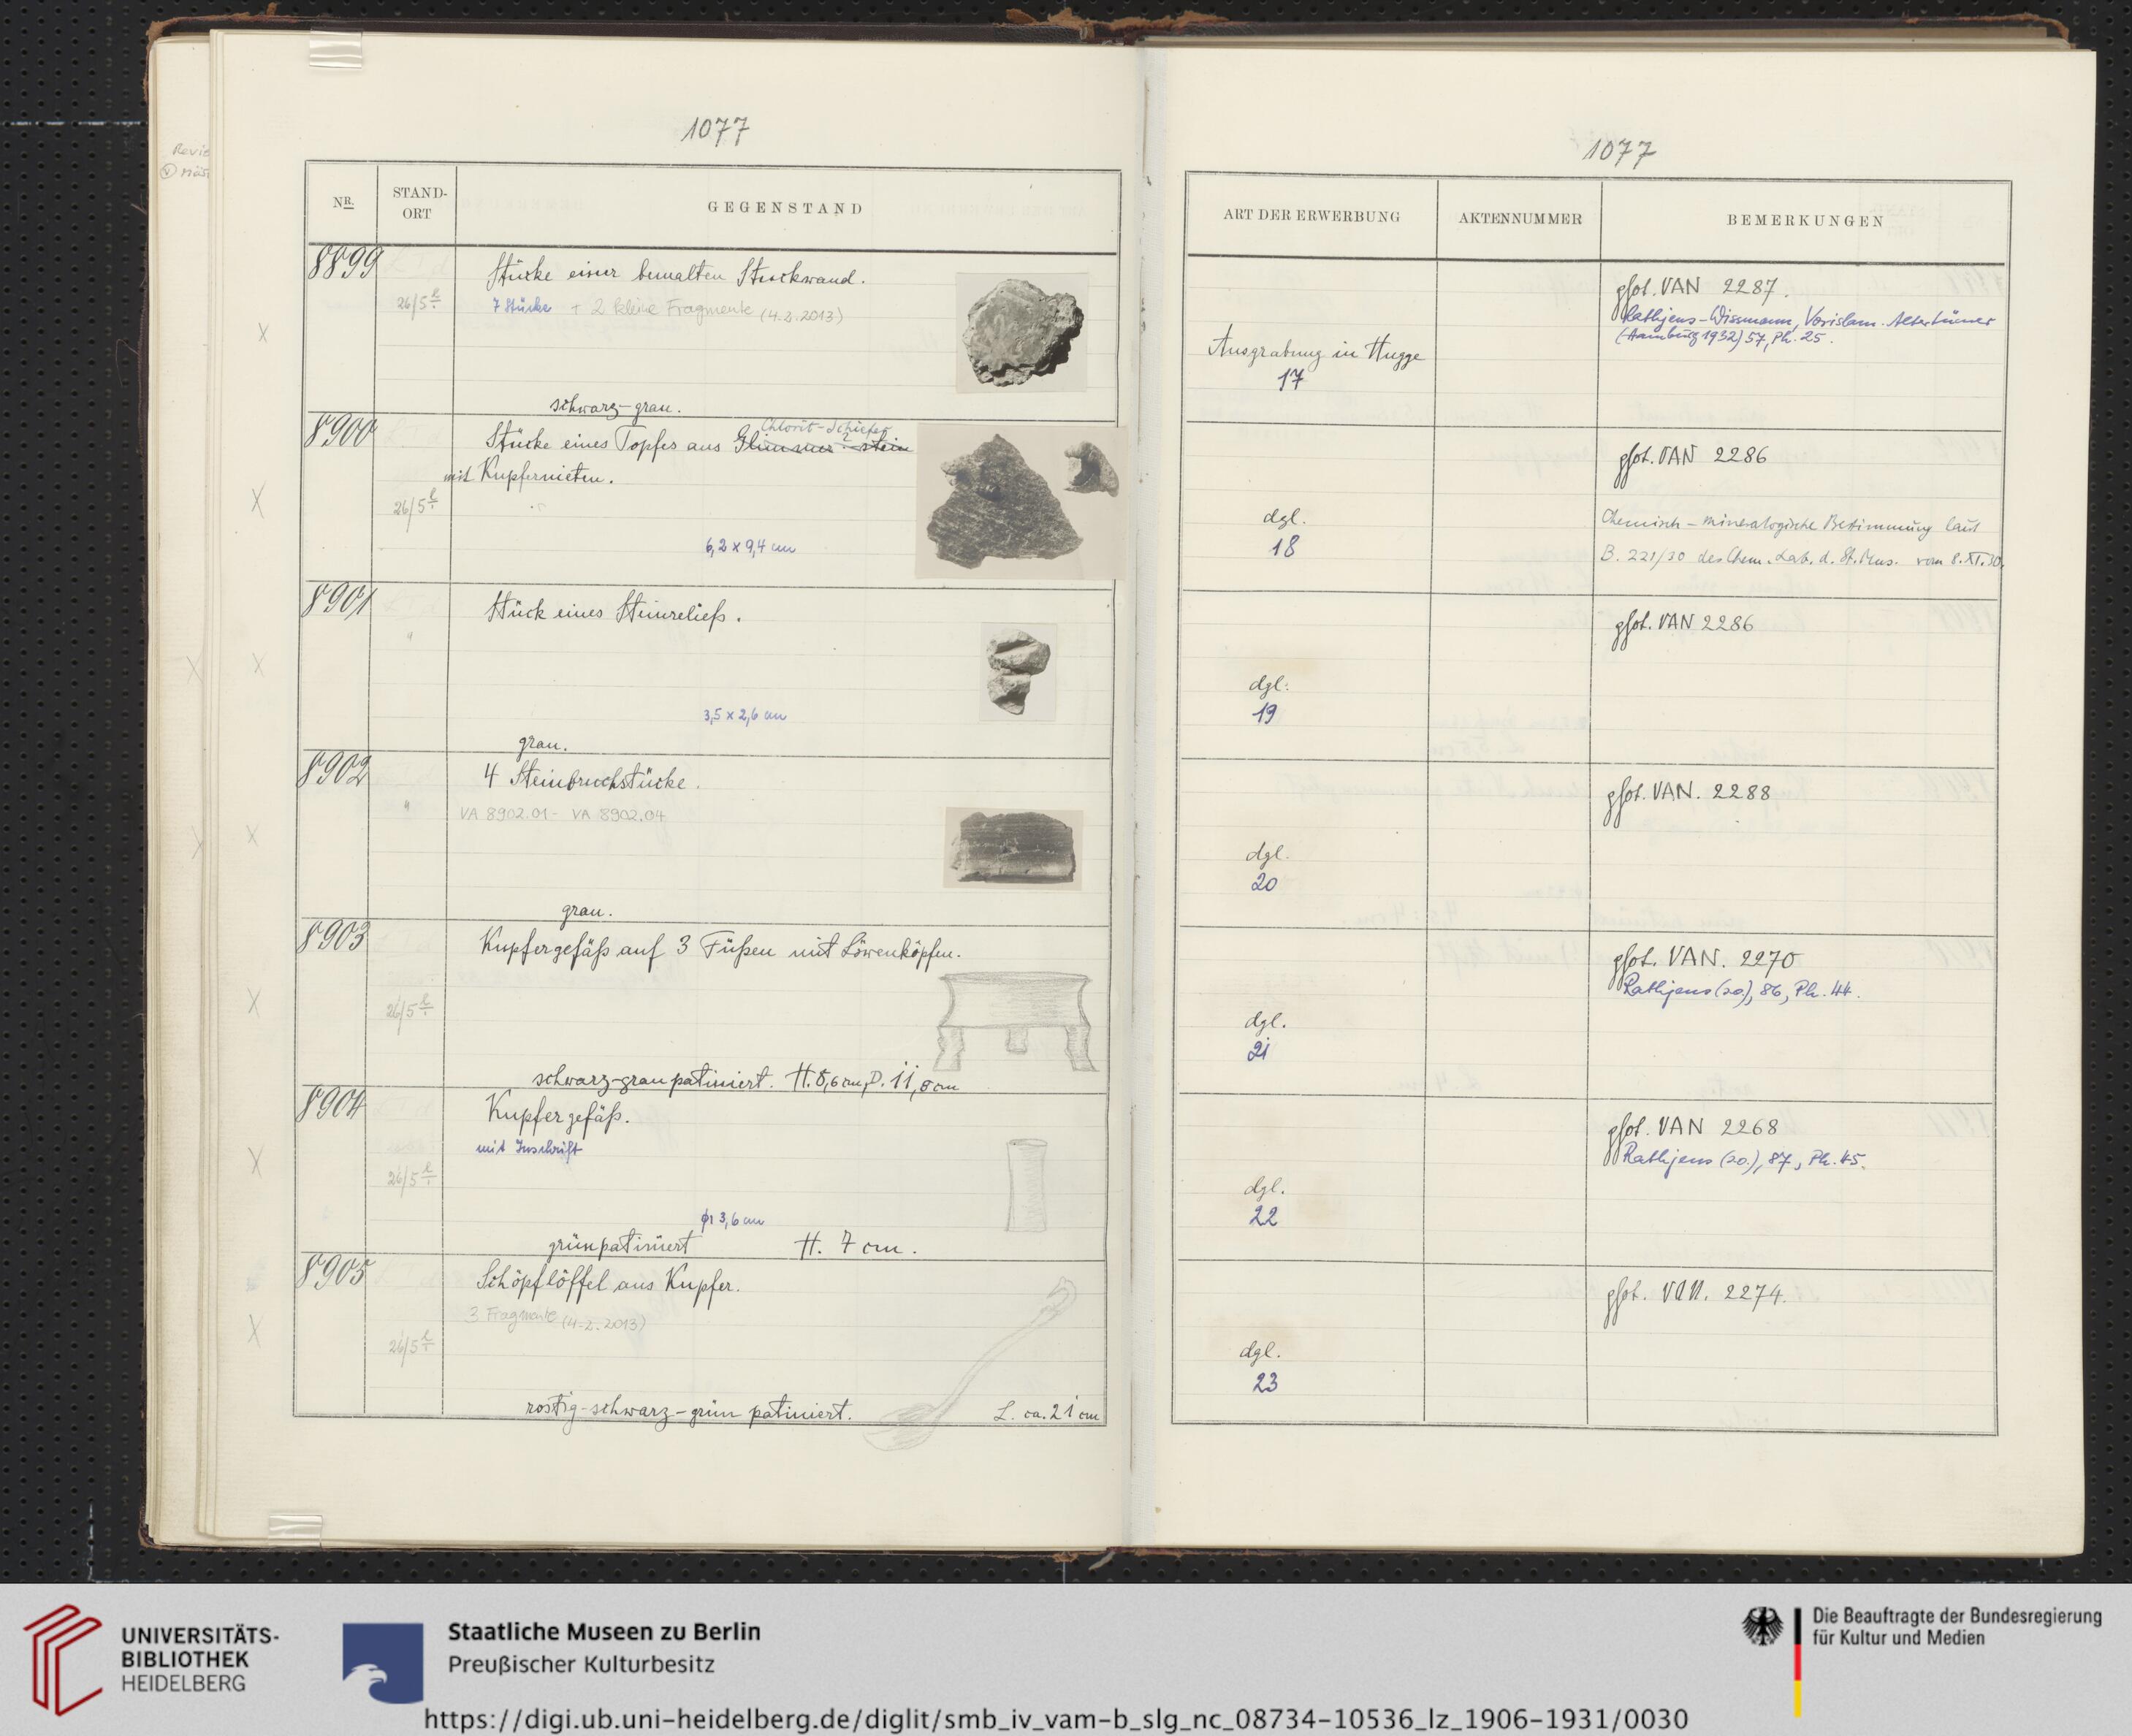 1077
NR.
STAND-
ORT
GEGENSTAND
8899
Stücke einer bemalten Stuckwand.
26/5
7 Stücke + 2 kleine Fragmente (4.2.2013)
schwarz-grau.
8900
Chlorit-Schiefer
Stücke eines Topfes aus Glimmer?stein
mit Kupfernieten.
26/5
6,2 x 9,4 cm
8901
Stück eines Steinreliefs.
"
3,5 x 2,6 cm
grau.
8902
4 Steinbruchstücke.
"
VA 8902.01 - VA 8902.04
grau.
8903
Kupfergefäß auf 3 Füßen mit Löwenköpfen.
26/5
schwarz-grau patiniert. H. 8,6 cm, D. 11,8 cm
8904
Kupfergefäß.
mit Inschrift
26/5
3,6 cm
grünpatiniert H. 7 cm.
8905
Schöpflöffel aus Kupfer.
3 Fragmente (4.2.2013)
26/5
rostig-schwarz-grün patiniert. L. ca. 21 cm
1077
ART DER ERWERBUNG
AKTENNUMMER
BEMERKUNGEN
phot. VAN 2287.
Rathjens-Wissmann, Vorislam. Altertümer
(Hamburg 1932) 57, Ph. 25.
Ausgrabung in Hugge
17
phot. VAN 2286
dgl.
18
Chemisch-mineralogische Bestimmung laut
B. 221/30 des Chem. Lab. d. St. Mus. vom 8.XI.30.
phot. VAN 2286
dgl.
19
phot. VAN. 2288
dgl.
20
phot. VAN. 2270
Rathjens (so.), 86, Ph. 44.
dgl.
21
phot. VAN 2268
Rathjens (so.), 87, Ph. 45.
dgl.
22
phot. VAN. 2274.
dgl.
23
UNIVERSITÄTS-
BIBLIOTHEK
HEIDELBERG
Staatliche Museen zu Berlin
Preußischer Kulturbesitz
Die Beauftragte der Bundesregierung
für Kultur und Medien
https://digi.ub.uni-heidelberg.de/diglit/smb_iv_vam-b_slg_nc_08734-10536_lz_1906-1931/0030